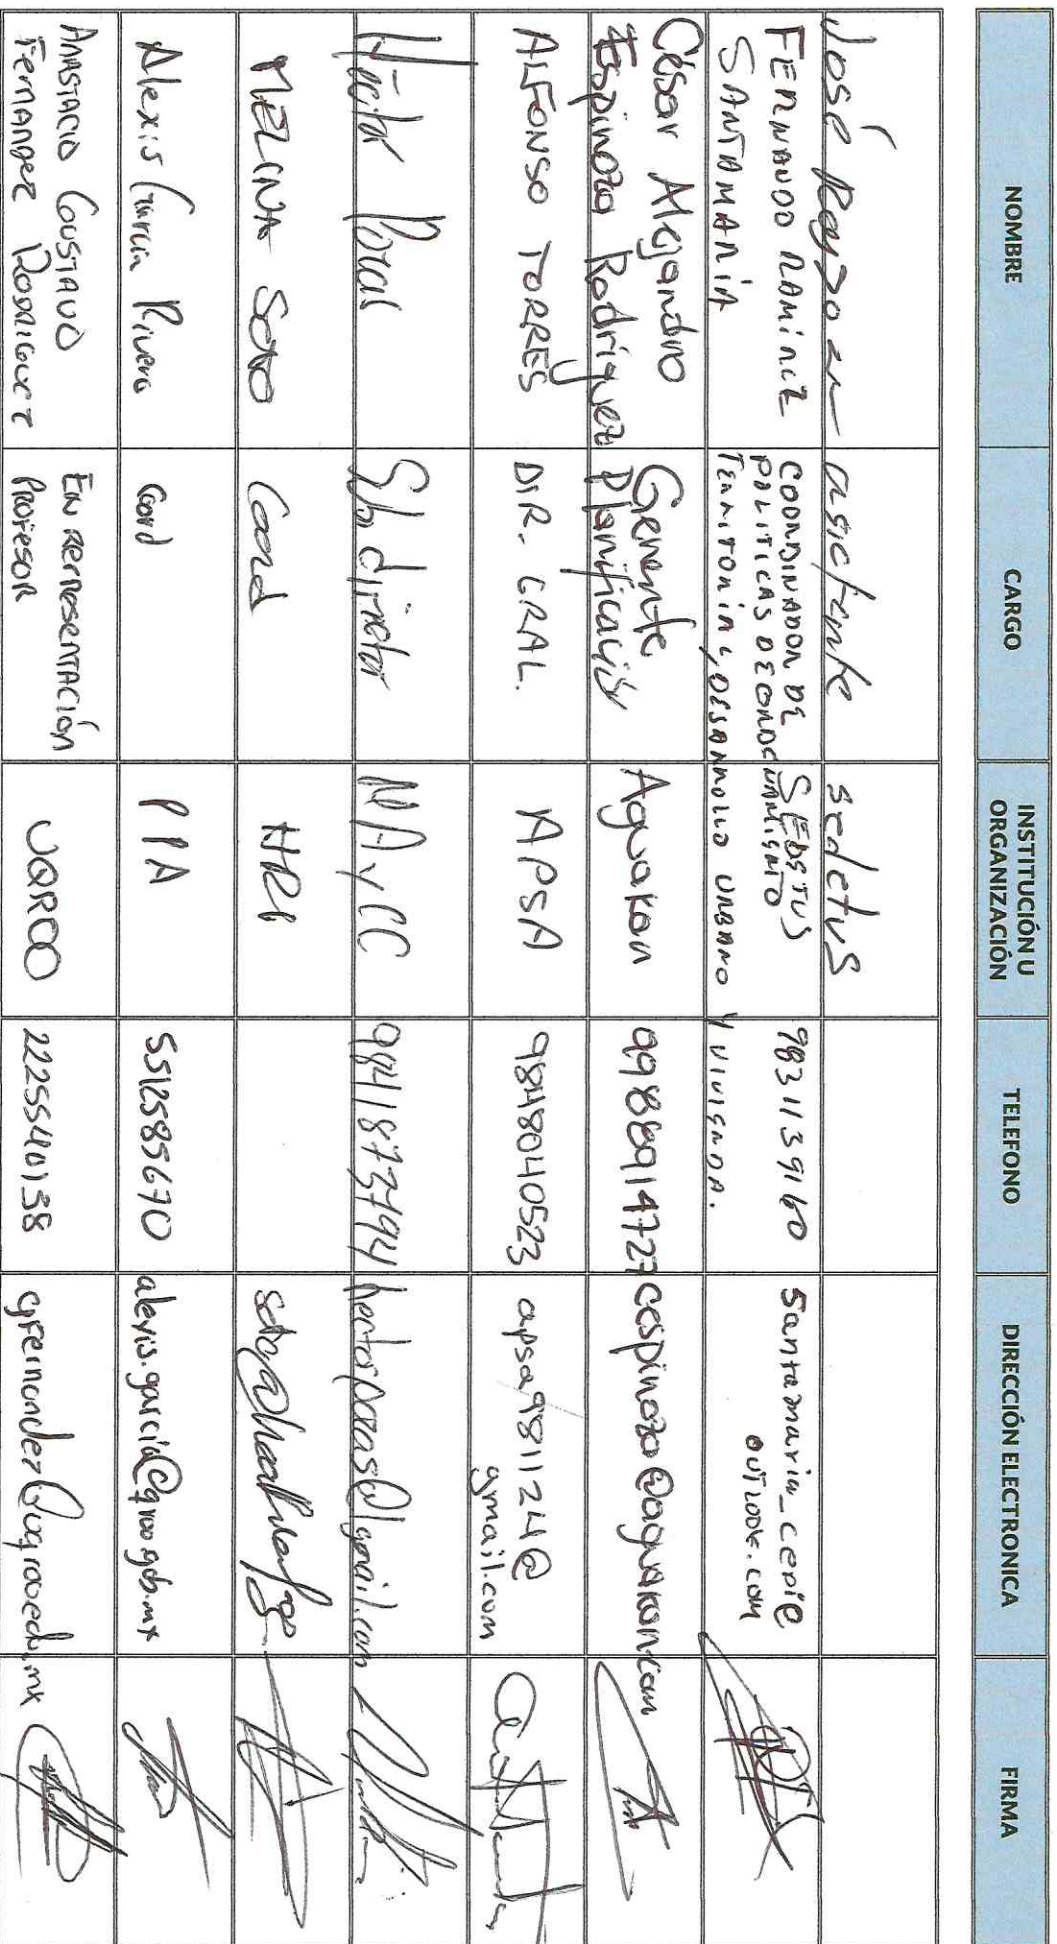 NOMBRE CARGO INSTITUCIÓN U ORGANIZACIÓN TELEFONO DIRECCIÓN ELECTRONICA FIRMA
José asistente sedetus
FERNANDO RAMÍREZ SANTAMARÍA COORDINADOR DE POLITICAS DE ORDENAMIENTO TERRITORIAL, DESARROLLO URBANO Y VIVIENDA. SEDETUS 9831139160 santamaria_cepie@outlook.com
César Alejandro Espinoza Rodríguez Gerente Planificación Aguakan 9988914727 cespinoza@aguakan.com
ALFONSO TORRES DIR. GRAL. APSA 9848040523 apsa981124@gmail.com
Héctor Porras Subdirector MAyCC 9841873794 hectorporras@gmail.com
MELINA SOTO Coord HRI
Alexis García Rivera Coord PPA 5512585670 alexis.garcia@qroo.gob.mx
ANASTACIO GUSTAVO Fernandez Rodriguez En representación Profesor UQROO 2225540158 gfernandez@uqroo.edu.mx